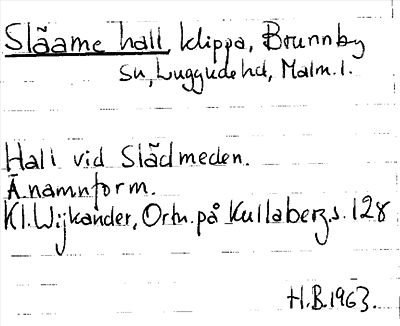 Slãame hall, klippa, Brunnby
sn, Luggude hd, Malm. l.
Hall vid Slädmeden.
Ä. namnform.
Kl. Wijkander, Ortn. på Kullaberg, s. 128
H.B. 1963.